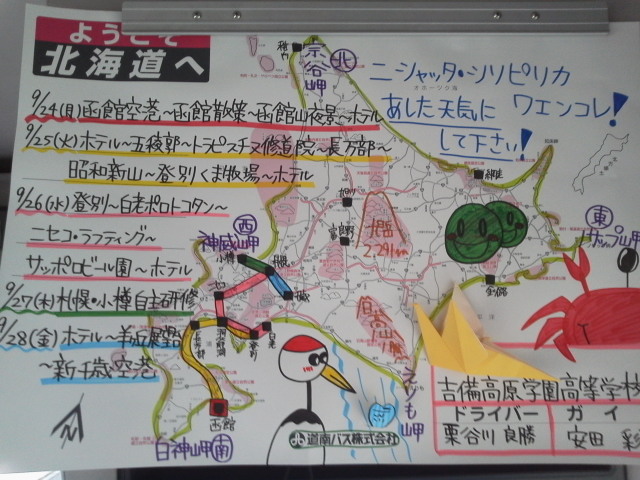 ようこそ
北海道へ
9/24(月)函館空港〜函館散策〜函館山夜景〜ホテル
9/25(火)ホテル〜五稜郭〜トラピスチヌ修道院〜長万部〜
昭和新山〜登別くま牧場〜ホテル
9/26(水)登別〜白老ポロトコタン〜
ニセコ・ラフティング〜
サッポロビール園〜ホテル
9/27(木)札幌・小樽自主研修
9/28(金)ホテル〜羊ヶ丘展望台
〜新千歳空港
稚内
宗谷岬
北
ニーシャッタ・シリピリカ
あした天気に ワエンコレ!
して下さい!
旭川
富良野
大雪
2291m
日高山脈
東
釧路
西
神威岬
小樽
札幌
ニセコ
長万部
登別
白老
函館
白神岬
南
えりも岬
道南バス株式会社
吉備高原学園高等学校
ドライバー ガイ
栗谷川 良勝 安田 彩